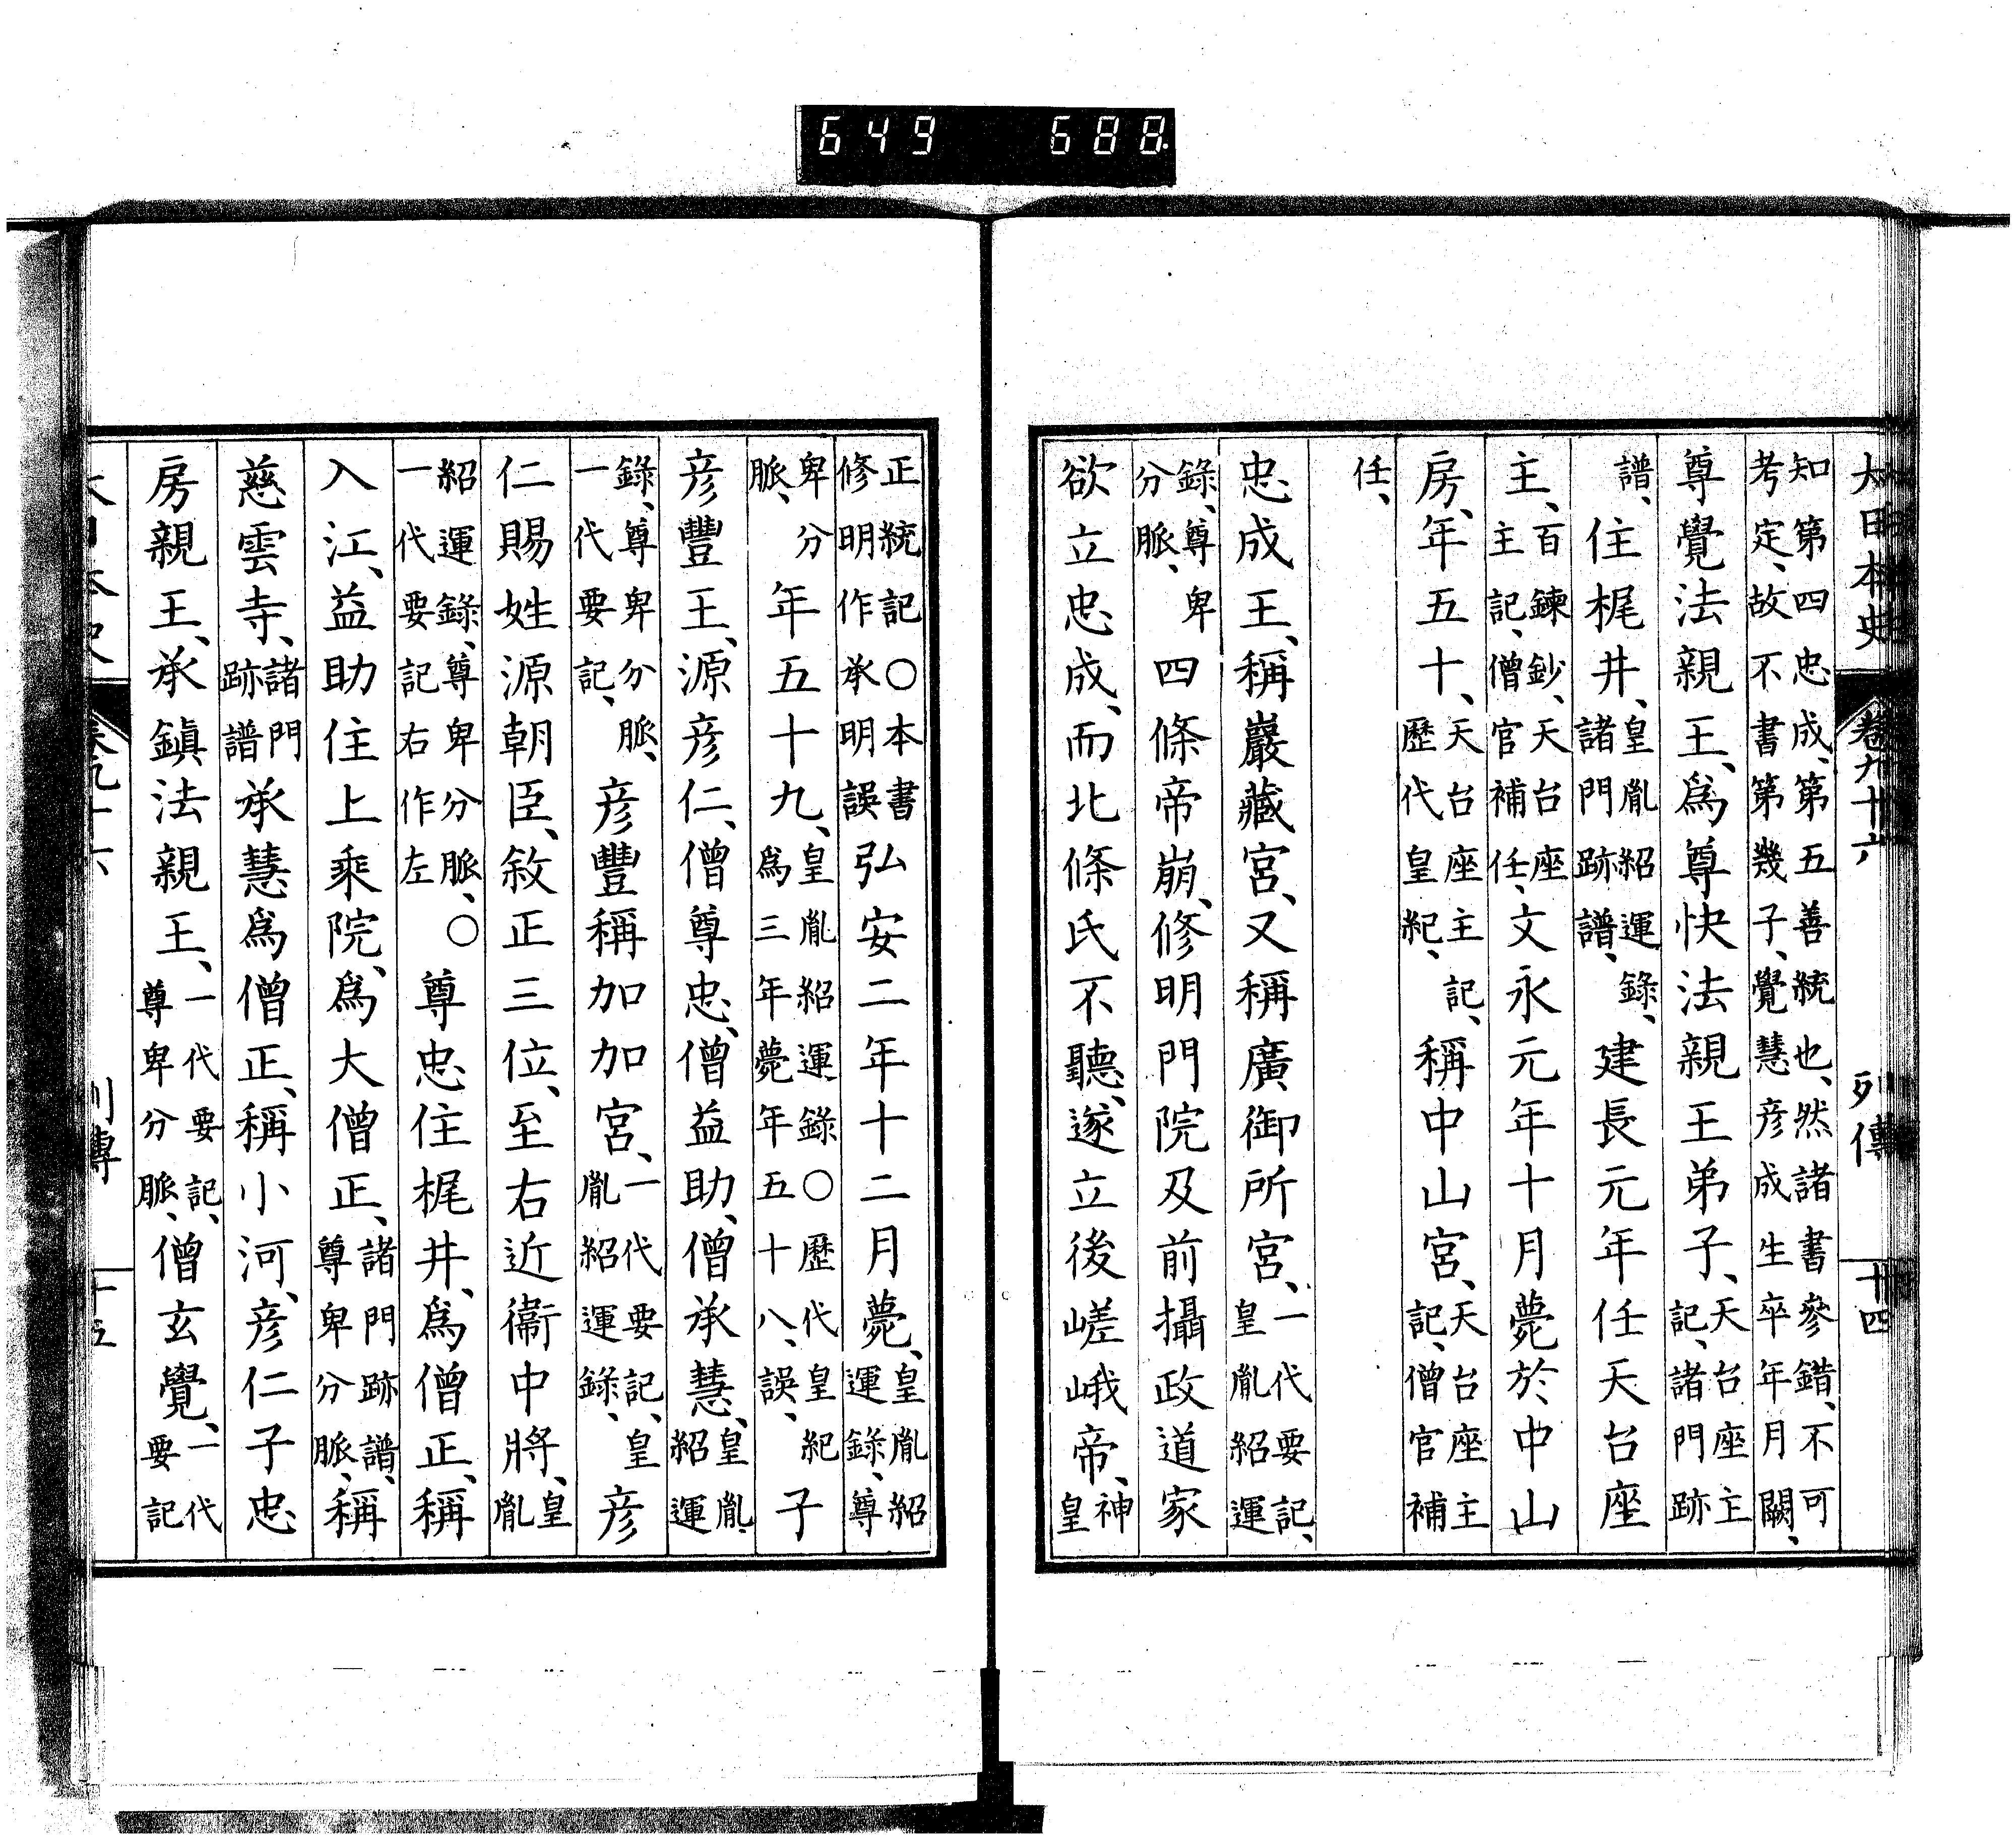 649 688.
大日本史 卷九十六 列傳 十四
知第四忠成、第五善統也、然諸書參錯、不可
考定、故不書第幾子、覺慧彥成生卒年月闕、
尊覺法親王、爲尊快法親王弟子、天台座主
記、諸門跡
譜、住梶井、皇胤紹運錄、
諸門跡譜、建長元年任天台座
主、百鍊鈔、天台座
主記、僧官補任、文永元年十月薨於中山
房、年五十、天台座主記、
歷代皇紀、稱中山宮、天台座主
記、僧官補
任、
忠成王、稱巖藏宮、又稱廣御所宮、一代要記、
皇胤紹運
錄、尊卑
分脈、四條帝崩、修明門院及前攝政道家
欲立忠成、而北條氏不聽、遂立後嵯峨帝、神
皇
正統記○本書
修明作承明誤弘安二年十二月薨、皇胤紹
運錄、尊
卑分
脈、年五十九、皇胤紹運錄○歷代皇紀
爲三年薨年五十八、誤、子
彥豐王、源彥仁、僧尊忠、僧益助、僧承慧、皇胤
紹運
錄、尊卑分脈、
一代要記、彥豐稱加加宮、一代要記、皇
胤紹運錄、彥
仁賜姓源朝臣、敘正三位、至右近衞中將、皇
胤
紹運錄、尊卑分脈、○
一代要記右作左尊忠住梶井、爲僧正、稱
入江、益助住上乘院、爲大僧正、諸門跡譜、
尊卑分脈、稱
慈雲寺、諸門
跡譜承慧爲僧正、稱小河、彥仁子忠
房親王、承鎭法親王、一代要記、
尊卑分脈、僧玄覺、一代
要記
大日本史 卷九十六 列傳 十五